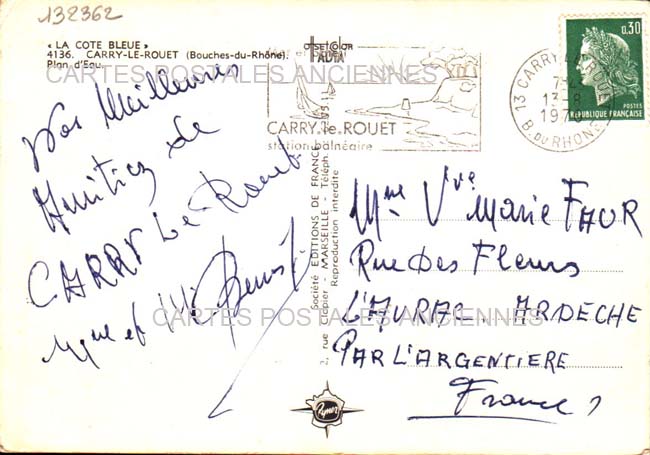 132362
« LA COTE BLEUE »
4136. CARRY-LE-ROUET (Bouches-du-Rhône).
Plan d'Eau.
CARTES POSTALES ANCIENNES
CARRY le ROUET
station balnéaire
13 CARRY LE ROUET
13-8
B. DU RHONE
0,30
POSTES
REPUBLIQUE FRANÇAISE
Nos Meilleures
Amitiés de
CARRY Le Rouet
Mme et Mr
Société EDITIONS DE FRANCE
rue Clapier - MARSEILLE - Téléph.
Reproduction interdite
Mme Vve Marie FAUR
Rue Des Fleurs
L'AURAC. ARDECHE
PAR L'ARGENTIERE
France
CARTES POSTALES ANCIENNES